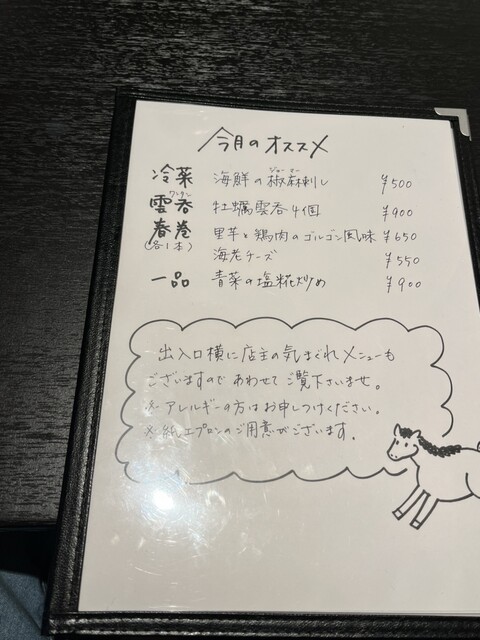 今月のオススメ
冷菜 海鮮の椒麻刺し ¥500
ジョーマー
雲呑 牡蠣雲呑4個 ¥900
ワンタン
春巻 里芋と鶏肉のゴルゴン風味 ¥650
(各1本) 海老チーズ ¥550
一品 青菜の塩糀炒め ¥900
出入口横に店主の気まぐれメニューも
ございますので あわせて ご覧下さいませ。
※ アレルギーの方はお申しつけください。
※ 紙エプロンのご用意がございます。